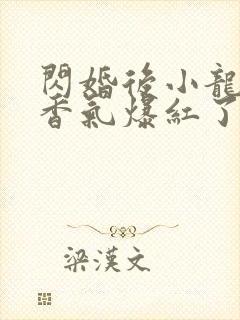 閃婚後小龍
香氣爆紅了
梁漢文